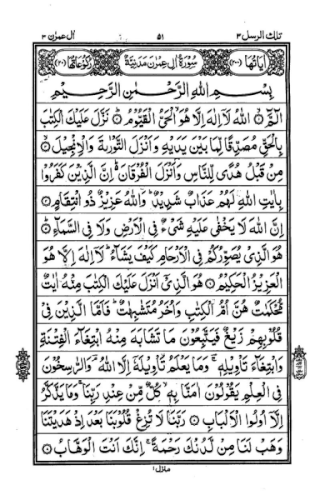 تلك الرسل ٣ ٥١ آل عمرٰن ٣
اٰیاتها (٢٠٠) سُوْرَةُ اٰلِ عِمْرٰنَ مَدَنِيَّةٌ رکوعاتها (٢٠)
بِسْمِ اللّٰهِ الرَّحْمٰنِ الرَّحِيْمِ
الٓمّٓ ۙ اللّٰهُ لَاۤ اِلٰهَ اِلَّا هُوَ الْحَيُّ الْقَيُّوْمُ ؕ نَزَّلَ عَلَيْكَ الْكِتٰبَ
بِالْحَقِّ مُصَدِّقًا لِّمَا بَيْنَ يَدَيْهِ وَاَنْزَلَ التَّوْرٰىةَ وَالْاِنْجِيْلَ ۙ
مِنْ قَبْلُ هُدًى لِّلنَّاسِ وَاَنْزَلَ الْفُرْقَانَ ؕ اِنَّ الَّذِيْنَ كَفَرُوْا
بِاٰيٰتِ اللّٰهِ لَهُمْ عَذَابٌ شَدِيْدٌ ؕ وَاللّٰهُ عَزِيْزٌ ذُو انْتِقَامٍ ؕ
اِنَّ اللّٰهَ لَا يَخْفٰى عَلَيْهِ شَيْءٌ فِي الْاَرْضِ وَلَا فِي السَّمَآءِ ؕ
هُوَ الَّذِيْ يُصَوِّرُكُمْ فِي الْاَرْحَامِ كَيْفَ يَشَآءُ ؕ لَاۤ اِلٰهَ اِلَّا هُوَ
الْعَزِيْزُ الْحَكِيْمُ هُوَ الَّذِيْۤ اَنْزَلَ عَلَيْكَ الْكِتٰبَ مِنْهُ اٰيٰتٌ
مُّحْكَمٰتٌ هُنَّ اُمُّ الْكِتٰبِ وَاُخَرُ مُتَشٰبِهٰتٌ ؕ فَاَمَّا الَّذِيْنَ فِيْ
قُلُوْبِهِمْ زَيْغٌ فَيَتَّبِعُوْنَ مَا تَشَابَهَ مِنْهُ ابْتِغَآءَ الْفِتْنَةِ
وَابْتِغَآءَ تَاْوِيْلِهٖ ۚ وَمَا يَعْلَمُ تَاْوِيْلَهٗۤ اِلَّا اللّٰهُ ۘ وَالرّٰسِخُوْنَ
فِي الْعِلْمِ يَقُوْلُوْنَ اٰمَنَّا بِهٖ ۙ كُلٌّ مِّنْ عِنْدِ رَبِّنَا ۚ وَمَا يَذَّكَّرُ
اِلَّاۤ اُولُوا الْاَلْبَابِ رَبَّنَا لَا تُزِغْ قُلُوْبَنَا بَعْدَ اِذْ هَدَيْتَنَا
وَهَبْ لَنَا مِنْ لَّدُنْكَ رَحْمَةً ۚ اِنَّكَ اَنْتَ الْوَهَّابُ
منزل ١